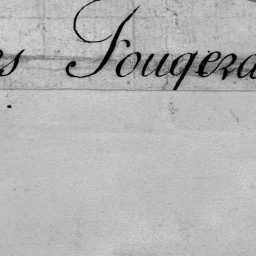 s Fougera